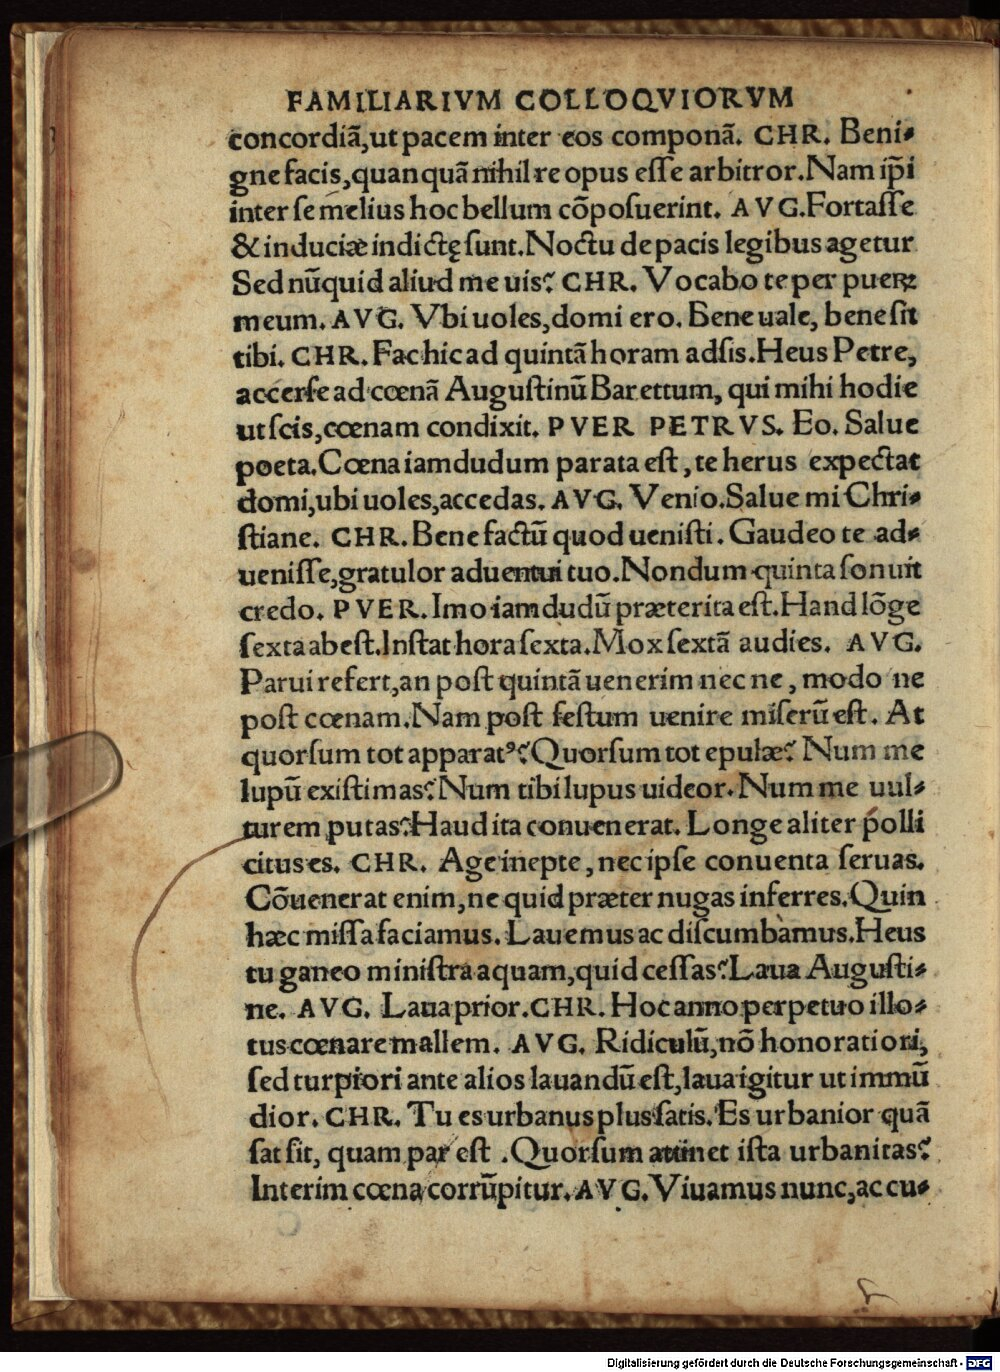 FAMILIARIVM COLLOQVIORVM
concordiã,ut pacem inter eos componã. CHR. Beni-
gne facis,quanquã nihil re opus eſſe arbitror.Nam ip̃i
inter ſe melius hoc bellum cõpoſuerint. AVG.Fortaſſe
& induciæ indictę ſunt.Noctu de pacis legibus agetur
Sed nũquid aliud me uis? CHR. Vocabo te per pueꝝ
meum. AVG. Vbi uoles,domi ero. Bene uale, bene ſit
tibi. CHR. Fac hic ad quintã horam adſis.Heus Petre,
accerſe ad cœnã Auguſtinũ Barettum, qui mihi hodie
ut ſcis,cœnam condixit. PVER PETRVS. Eo. Salue
poeta.Cœna iamdudum parata eſt, te herus expectat
domi,ubi uoles,accedas. AVG. Venio.Salue mi Chri-
ſtiane. CHR. Bene factũ quod ueniſti. Gaudeo te ad-
ueniſſe,gratulor aduentui tuo.Nondum quinta ſonuit
credo. PVER. Imo iamdudũ præterita eſt.Hand lõge
ſexta abeſt.Inſtat hora ſexta.Mox ſextã audies. AVG.
Parui refert,an poſt quintã uenerim nec ne, modo ne
poſt cœnam.Nam poſt feſtum uenire miſerũ eſt. At
quorſum tot apparatꝰ?Quorſum tot epulæ? Num me
lupũ exiſtimas?Num tibi lupus uideor.Num me uul-
turem putas?Haud ita conuenerat. Longe aliter polli
citus es. CHR. Age inepte, nec ipſe conuenta ſeruas.
Cõuenerat enim,ne quid præter nugas inferres.Quin
hæc miſſa faciamus. Lauemus ac diſcumbamus.Heus
tu ganeo miniſtra aquam,quid ceſſas?Laua Auguſti-
ne. AVG. Laua prior.CHR. Hoc anno perpetuo illo-
tus cœnare mallem. AVG. Ridiculũ,nõ honoratiori,
ſed turpiori ante alios lauandũ eſt,laua igitur ut immũ
dior. CHR. Tu es urbanus plus ſatis. Es urbanior quã
ſat ſit, quam par eſt .Quorſum attinet iſta urbanitas?
Interim cœna corrũpitur.AVG.Viuamus nunc,ac cu-
Digitalisierung gefördert durch die Deutsche Forschungsgemeinschaft - DFG